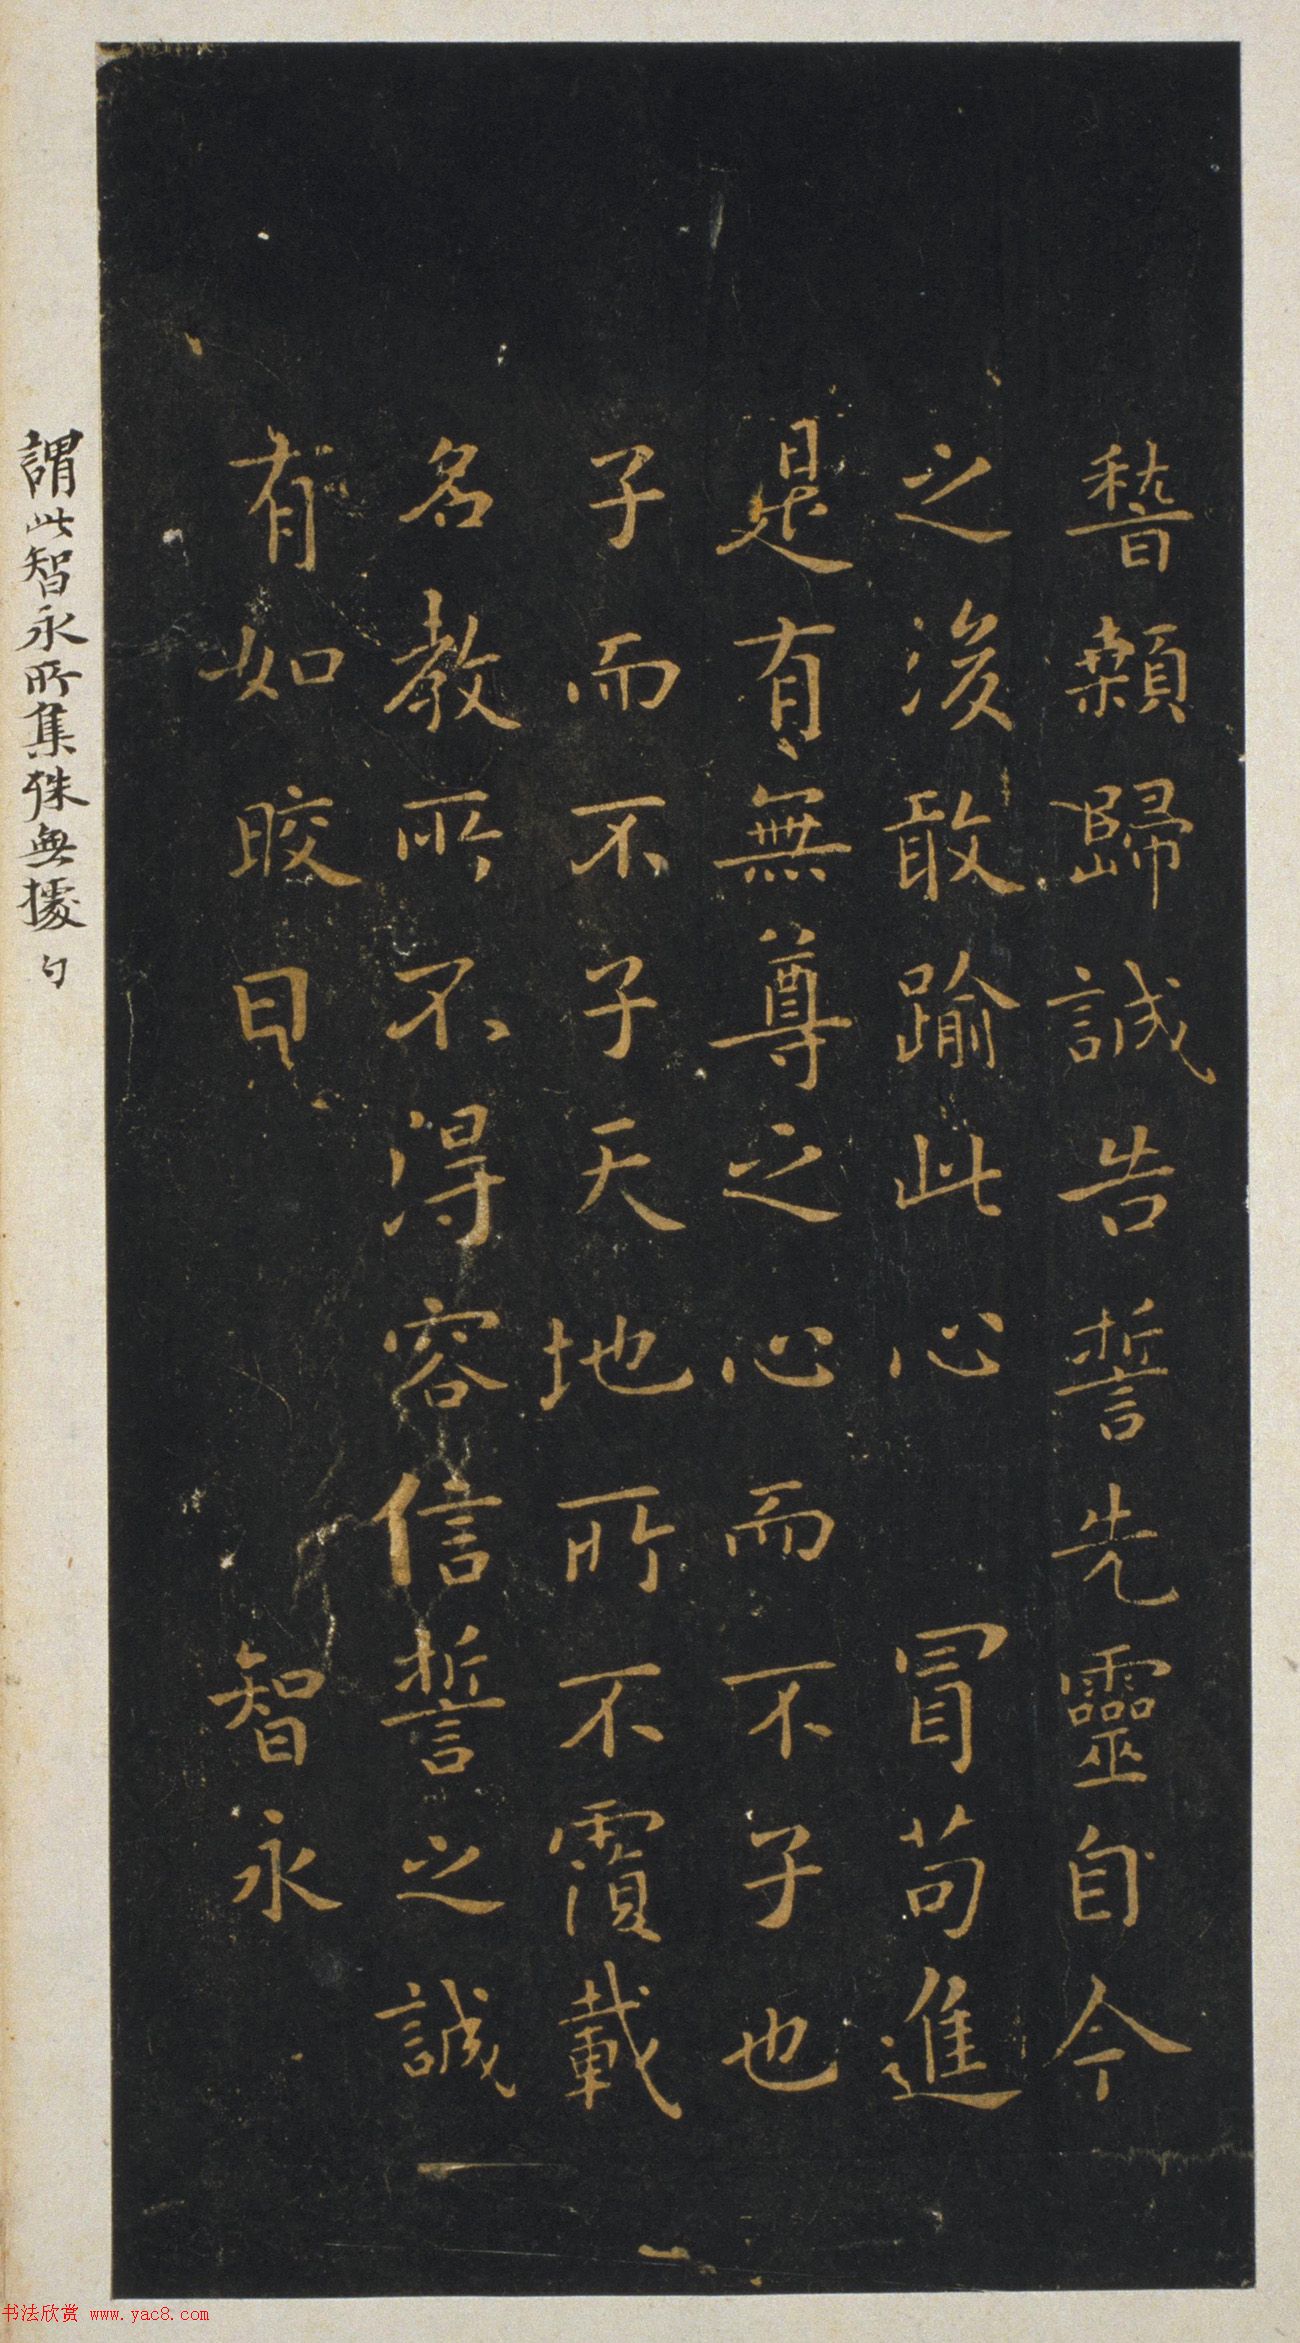 稽顙歸誠告誓先靈自今
之後敢踰此心冒苟進
是有無尊之心而不子也
子而不子天地所不覆載
名教所不得容信誓之誠
有如皎日 智永
謂此智永所集殊無據
书法欣赏 www.yac8.com